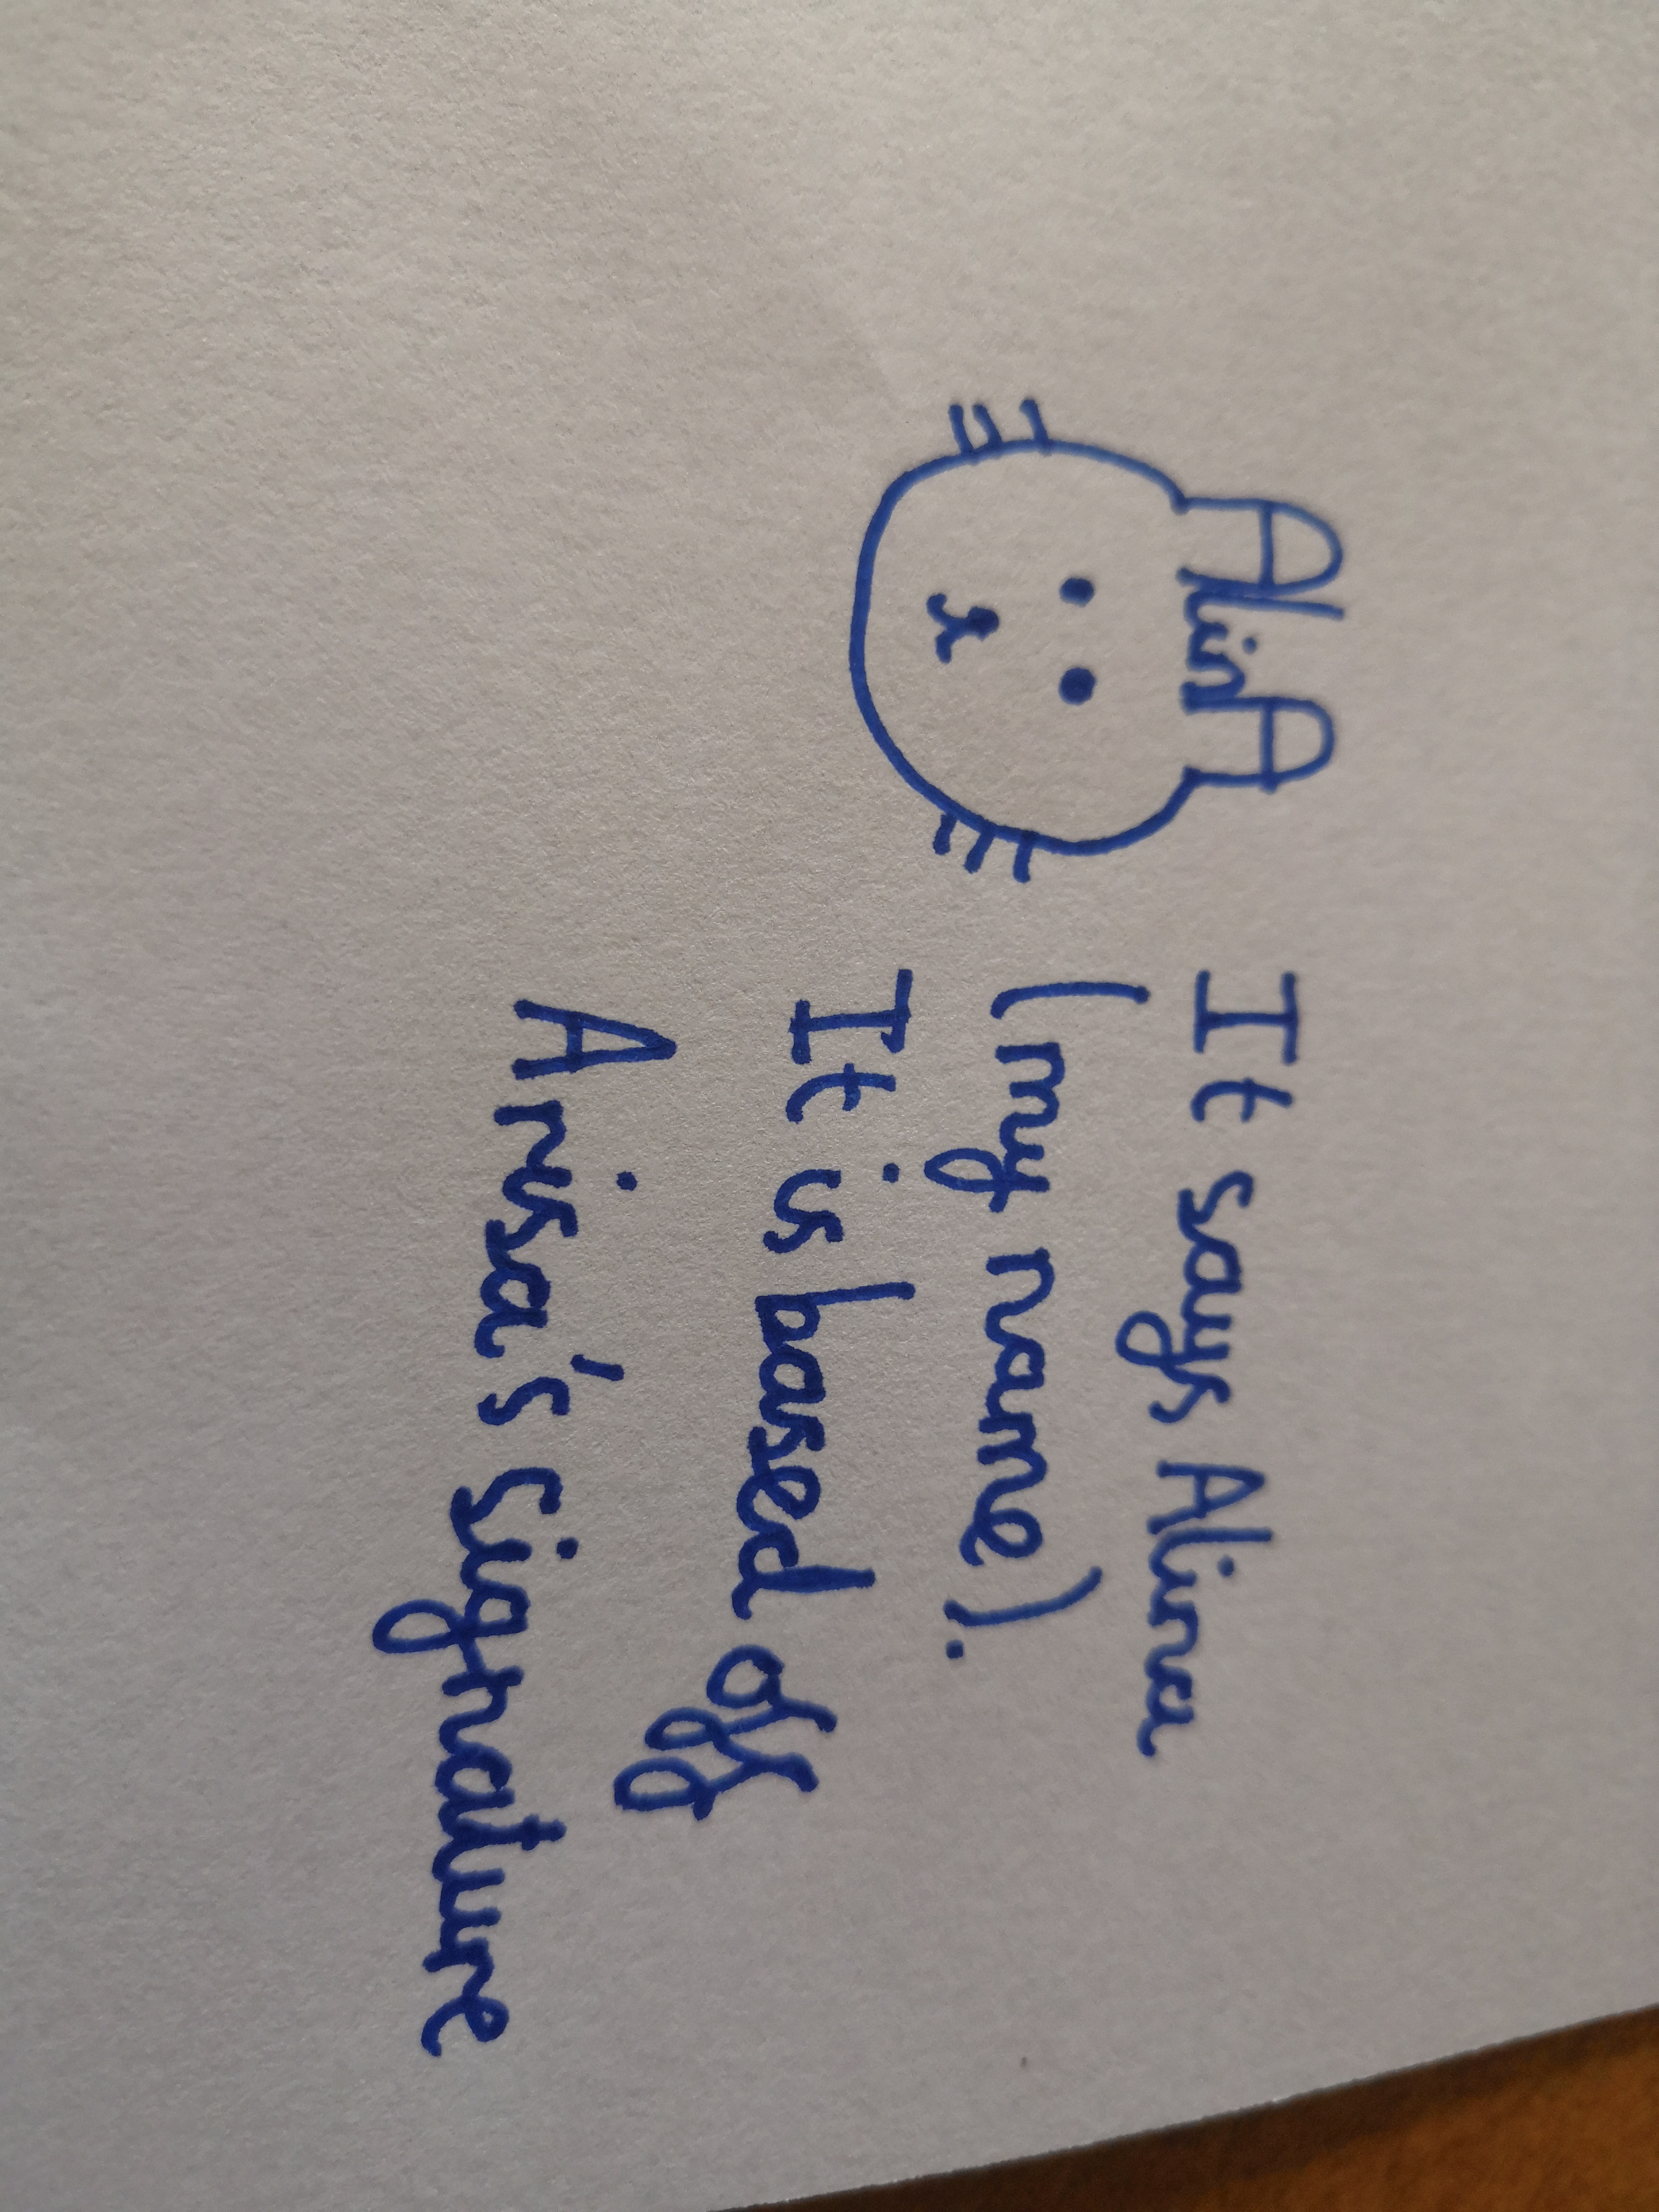 AlinA
It says Alina
(my name).
It is based off
Arisa's signature